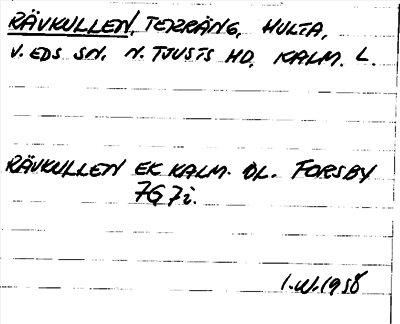 RÄVKULLEN, TERRÄNG, HULTA,
V. EDS SN. N. TJUSTS HD. KALM. L.
RÄVKULLEN EK KALM. ÖL. FORSBY
7G7i.
I.W.1958